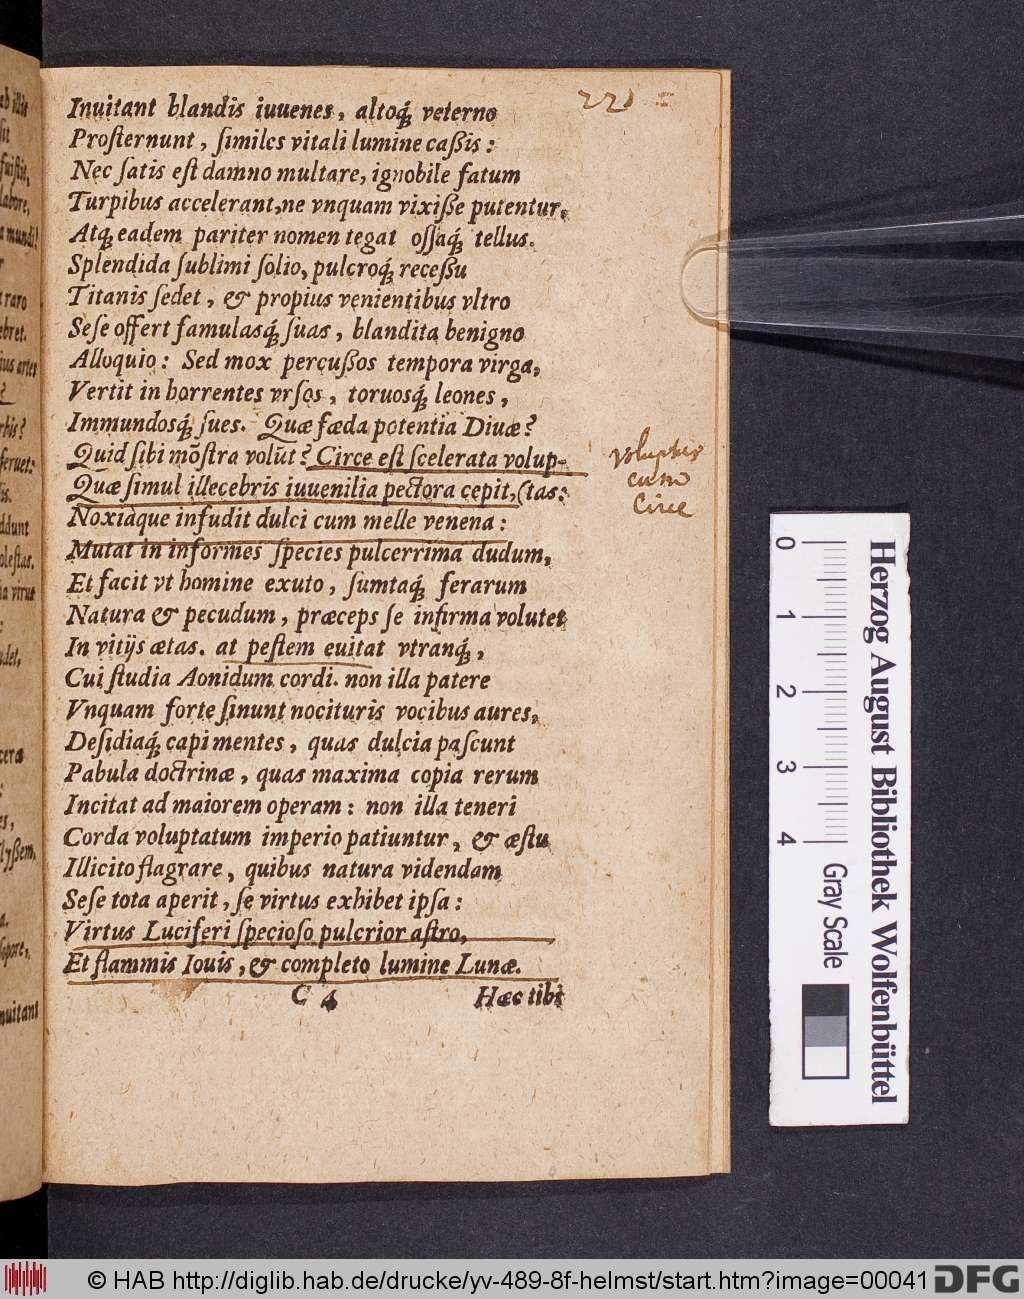 221
Inuitant blandis iuuenes, altoq́; veterno
Proſternunt, ſimiles vitali lumine caßis:
Nec ſatis eſt damno multare, ignobile fatum
Turpibus accelerant, ne vnquam vixiße putentur,
Atq; eadem pariter nomen tegat oſſaq́; tellus.
Splendida ſublimi ſolio, pulcroq́; receßu
Titanis ſedet, & propius venientibus vltro
Seſe offert famulasq́; ſuas, blandita benigno
Alloquio: Sed mox percußos tempora virga,
Vertit in horrentes vrſos, toruosq́; leones,
Immundosq́; ſues. Quæ fæda potentia Diuæ?
Quid ſibi mõſtra volũt? Circe eſt ſcelerata volup-
Quæ ſimul illecebris iuuenilia pectora cepit, (tas:
Noxiaque infudit dulci cum melle venena:
Mutat in informes ſpecies pulcerrima dudum,
Et facit vt homine exuto, ſumtaq́; ferarum
Natura & pecudum, præceps ſe infirma volutet
In vitijs ætas. at peſtem euitat vtranq́;,
Cui ſtudia Aonidum cordi. non illa patere
Vnquam forte ſinunt nocituris vocibus aures,
Deſidiaq́; capi mentes, quas dulcia paſcunt
Pabula doctrinæ, quas maxima copia rerum
Incitat ad maiorem operam: non illa teneri
Corda voluptatum imperio patiuntur, & æſtu
Illicito flagrare, quibus natura videndam
Seſe tota aperit, ſe virtus exhibet ipſa:
Virtus Luciferi ſpecioſo pulcrior aſtro,
Et flammis Iouis, & completo lumine Lunæ.
C 4 Hæc tibi
voluptas
cum
Circe
nuitant
0 1 2 3 4
Gray Scale
Herzog August Bibliothek Wolfenbüttel
© HAB http://diglib.hab.de/drucke/yv-489-8f-helmst/start.htm?image=00041
DFG